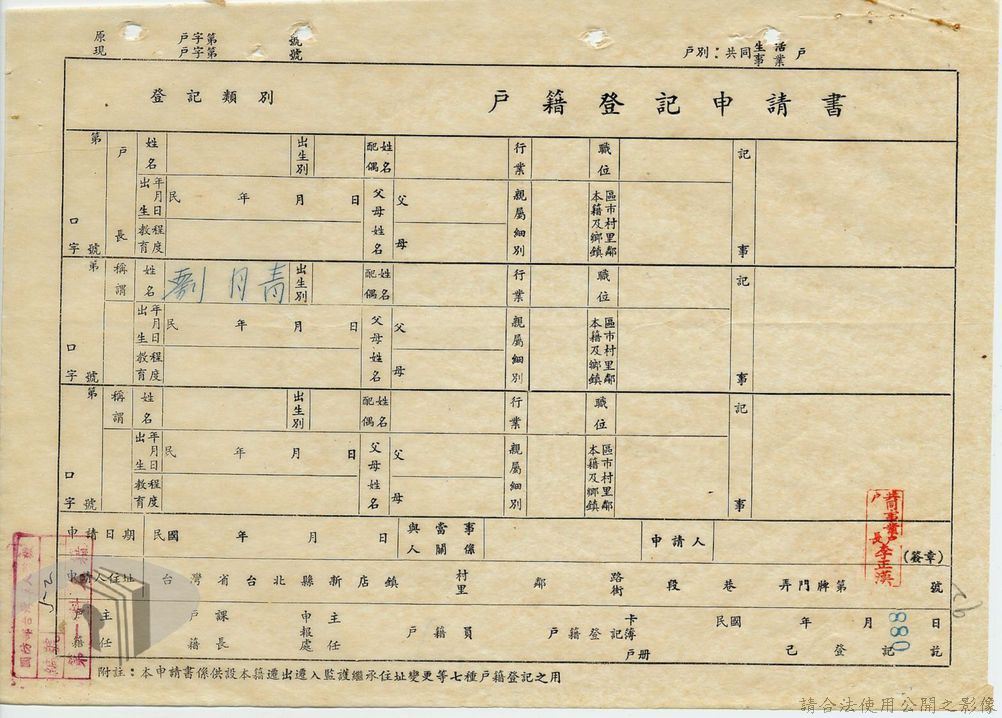 原 戶字第 號
現 戶字第 號
戶別：共同生活事業戶
登記類別 戶籍登記申請書
第 口字 號
戶長 姓名 出生別 配偶姓名 行業 職位 記事
出生年月日 民 年 月 日 父母姓名 父 母 親屬細別 本籍及鄉鎮區市村里鄰
教育程度
第 口字 號
稱謂 姓名 劉月青 出生別 配偶姓名 行業 職位 記事
出生年月日 民 年 月 日 父母姓名 父 母 親屬細別 本籍及鄉鎮區市村里鄰
教育程度
第 口字 號
稱謂 姓名 出生別 配偶姓名 行業 職位 記事
出生年月日 民 年 月 日 父母姓名 父 母 親屬細別 本籍及鄉鎮區市村里鄰
教育程度
申請日期 民國 年 月 日 與當事人關係 申請人 (簽章)
共同事業戶戶長李正漢
申請人住址 台灣省台北縣新店鎮 村里 鄰 路街 段 巷 弄門牌第 號
戶籍主任 戶籍課長 申報處主任 戶籍員 戶籍登記卡簿戶冊 民國 年 月 日 已登記訖
088
附註：本申請書係供設本籍遷出遷入監護繼承住址變更等七種戶籍登記之用
請合法使用公開之影像